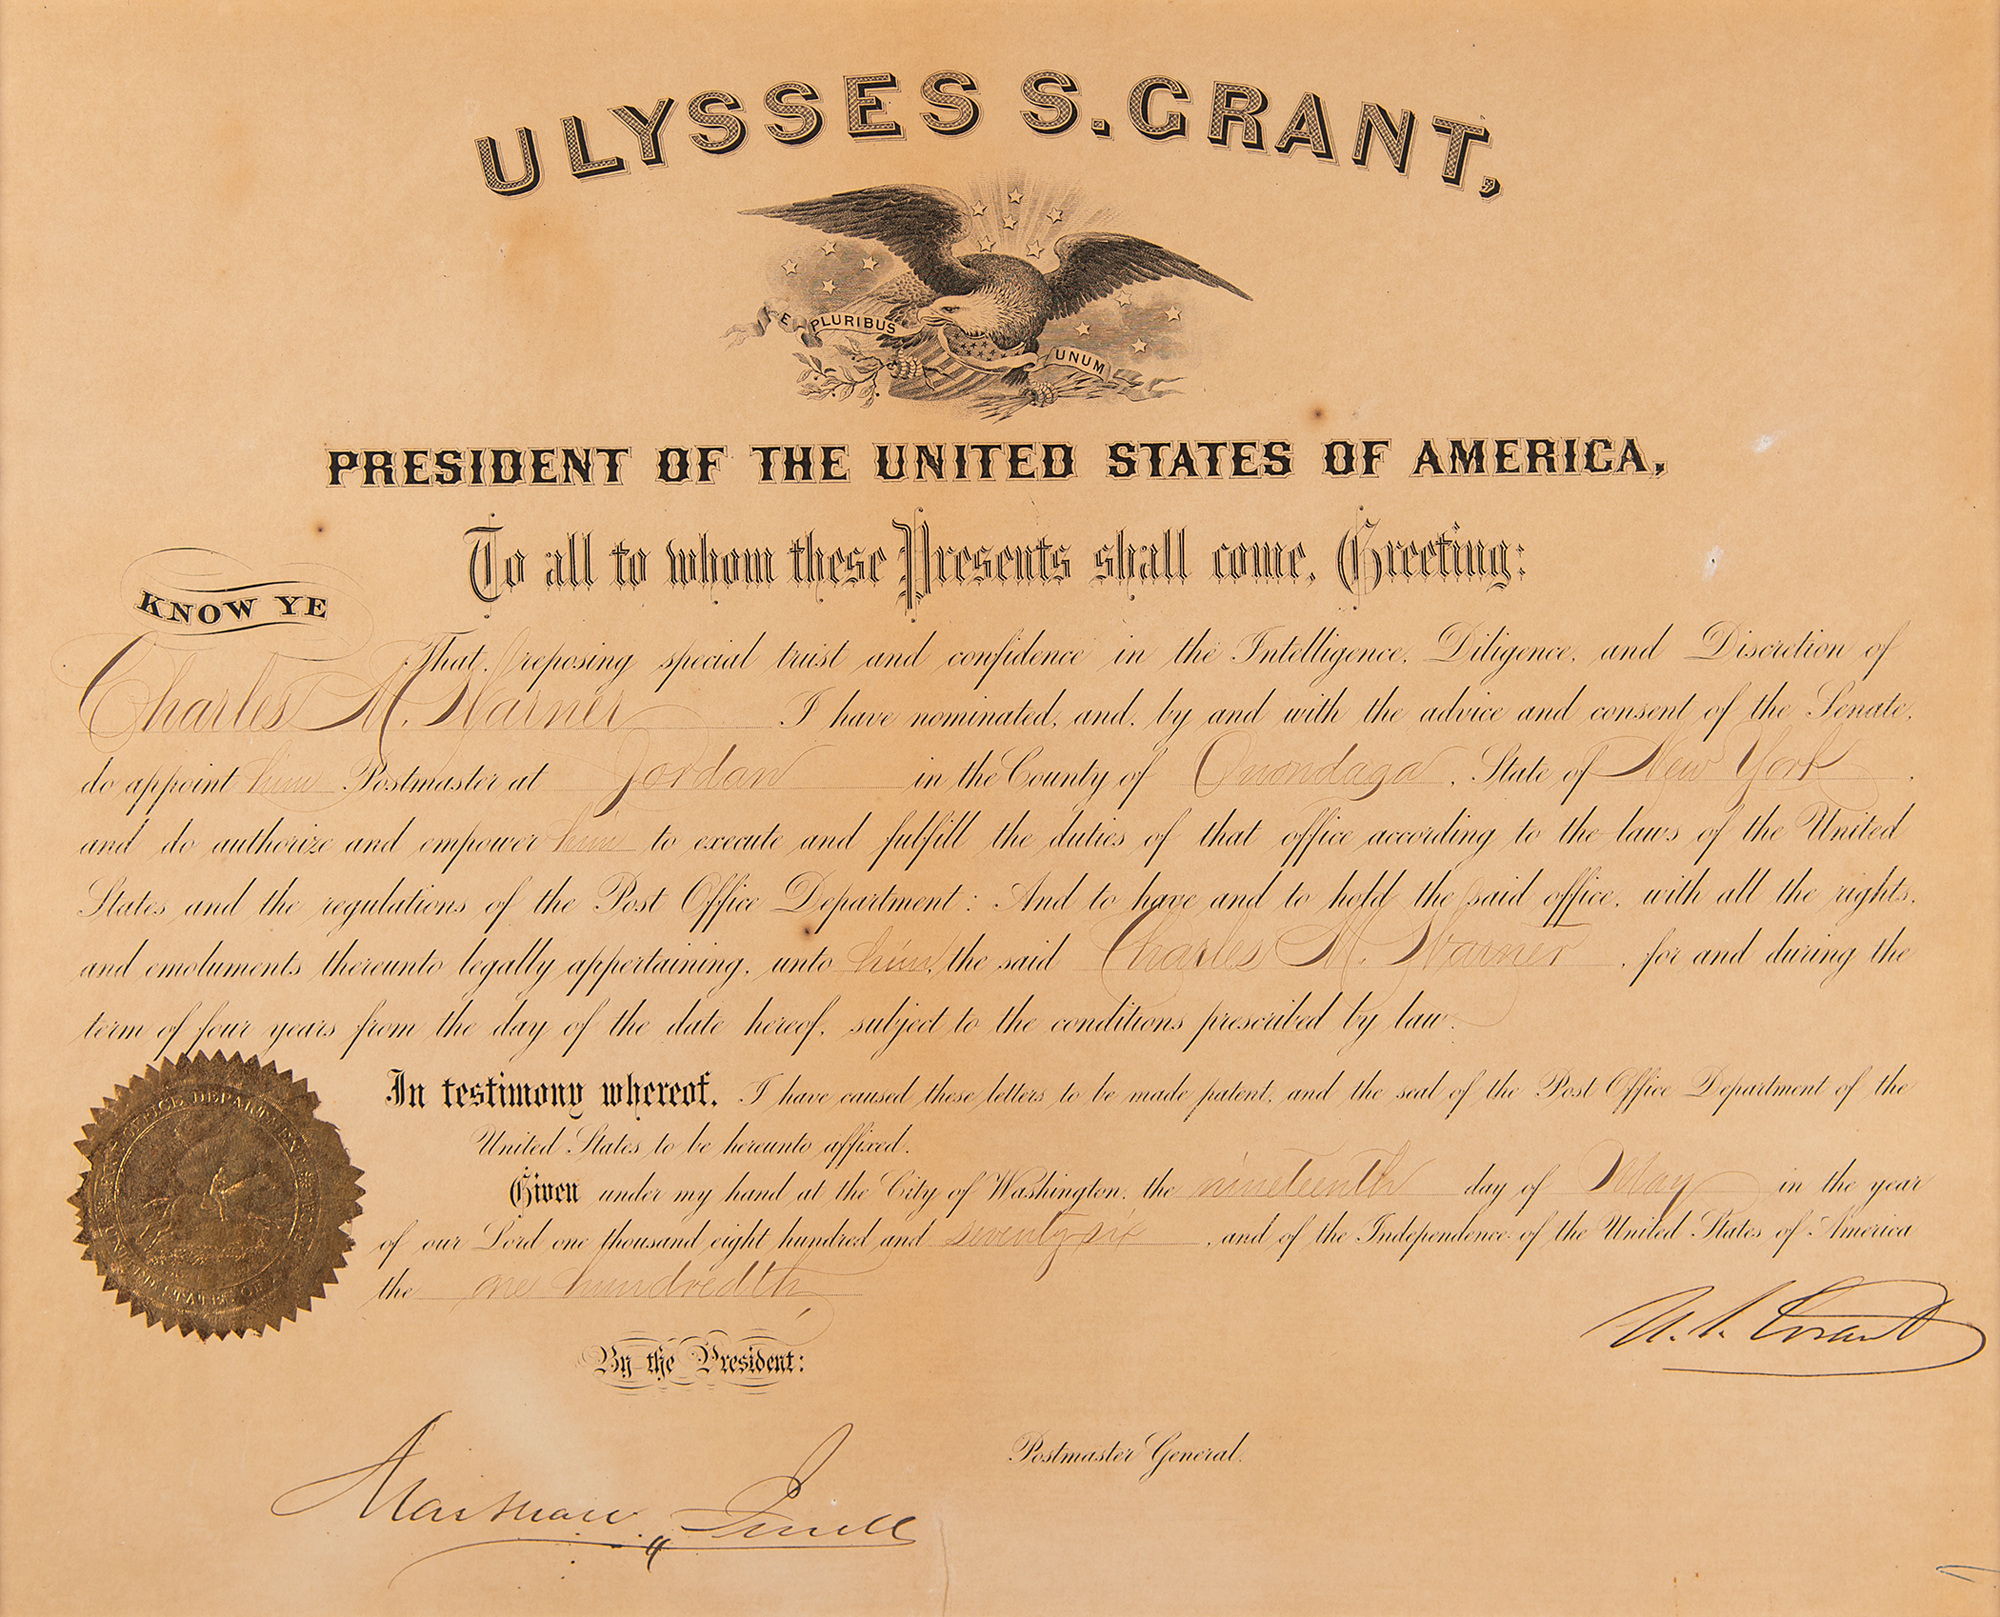 ULYSSES S. GRANT,
E PLURIBUS UNUM
PRESIDENT OF THE UNITED STATES OF AMERICA,
To all to whom these Presents shall come, Greeting:
KNOW YE
That, reposing special trust and confidence in the Intelligence, Diligence, and Discretion of
Charles M. Warner I have nominated, and, by and with the advice and consent of the Senate,
do appoint him Postmaster at Jordan in the County of Onondaga, State of New York,
and do authorize and empower him to execute and fulfill the duties of that office according to the laws of the United
States and the regulations of the Post Office Department: And to have and to hold the said office, with all the rights,
and emoluments thereunto legally appertaining, unto him, the said Charles M. Warner, for and during the
term of four years from the day of the date hereof, subject to the conditions prescribed by law.
In testimony whereof, I have caused these letters to be made patent, and the seal of the Post Office Department of the
United States to be hereunto affixed.
Given under my hand at the City of Washington, the nineteenth day of May in the year
of our Lord one thousand eight hundred and seventy six, and of the Independence of the United States of America
the one hundredth.
POST OFFICE DEPARTMENT
UNITED STATES OF AMERICA
U. S. Grant
By the President:
Postmaster General.
Marshall Jewell